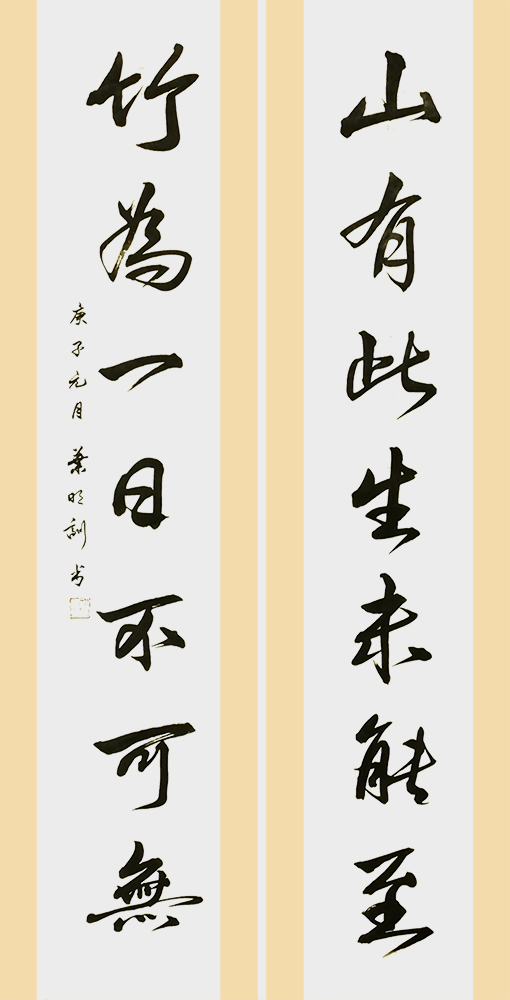 山有此生未能至
竹為一日不可無
庚子元月 葉明訓書